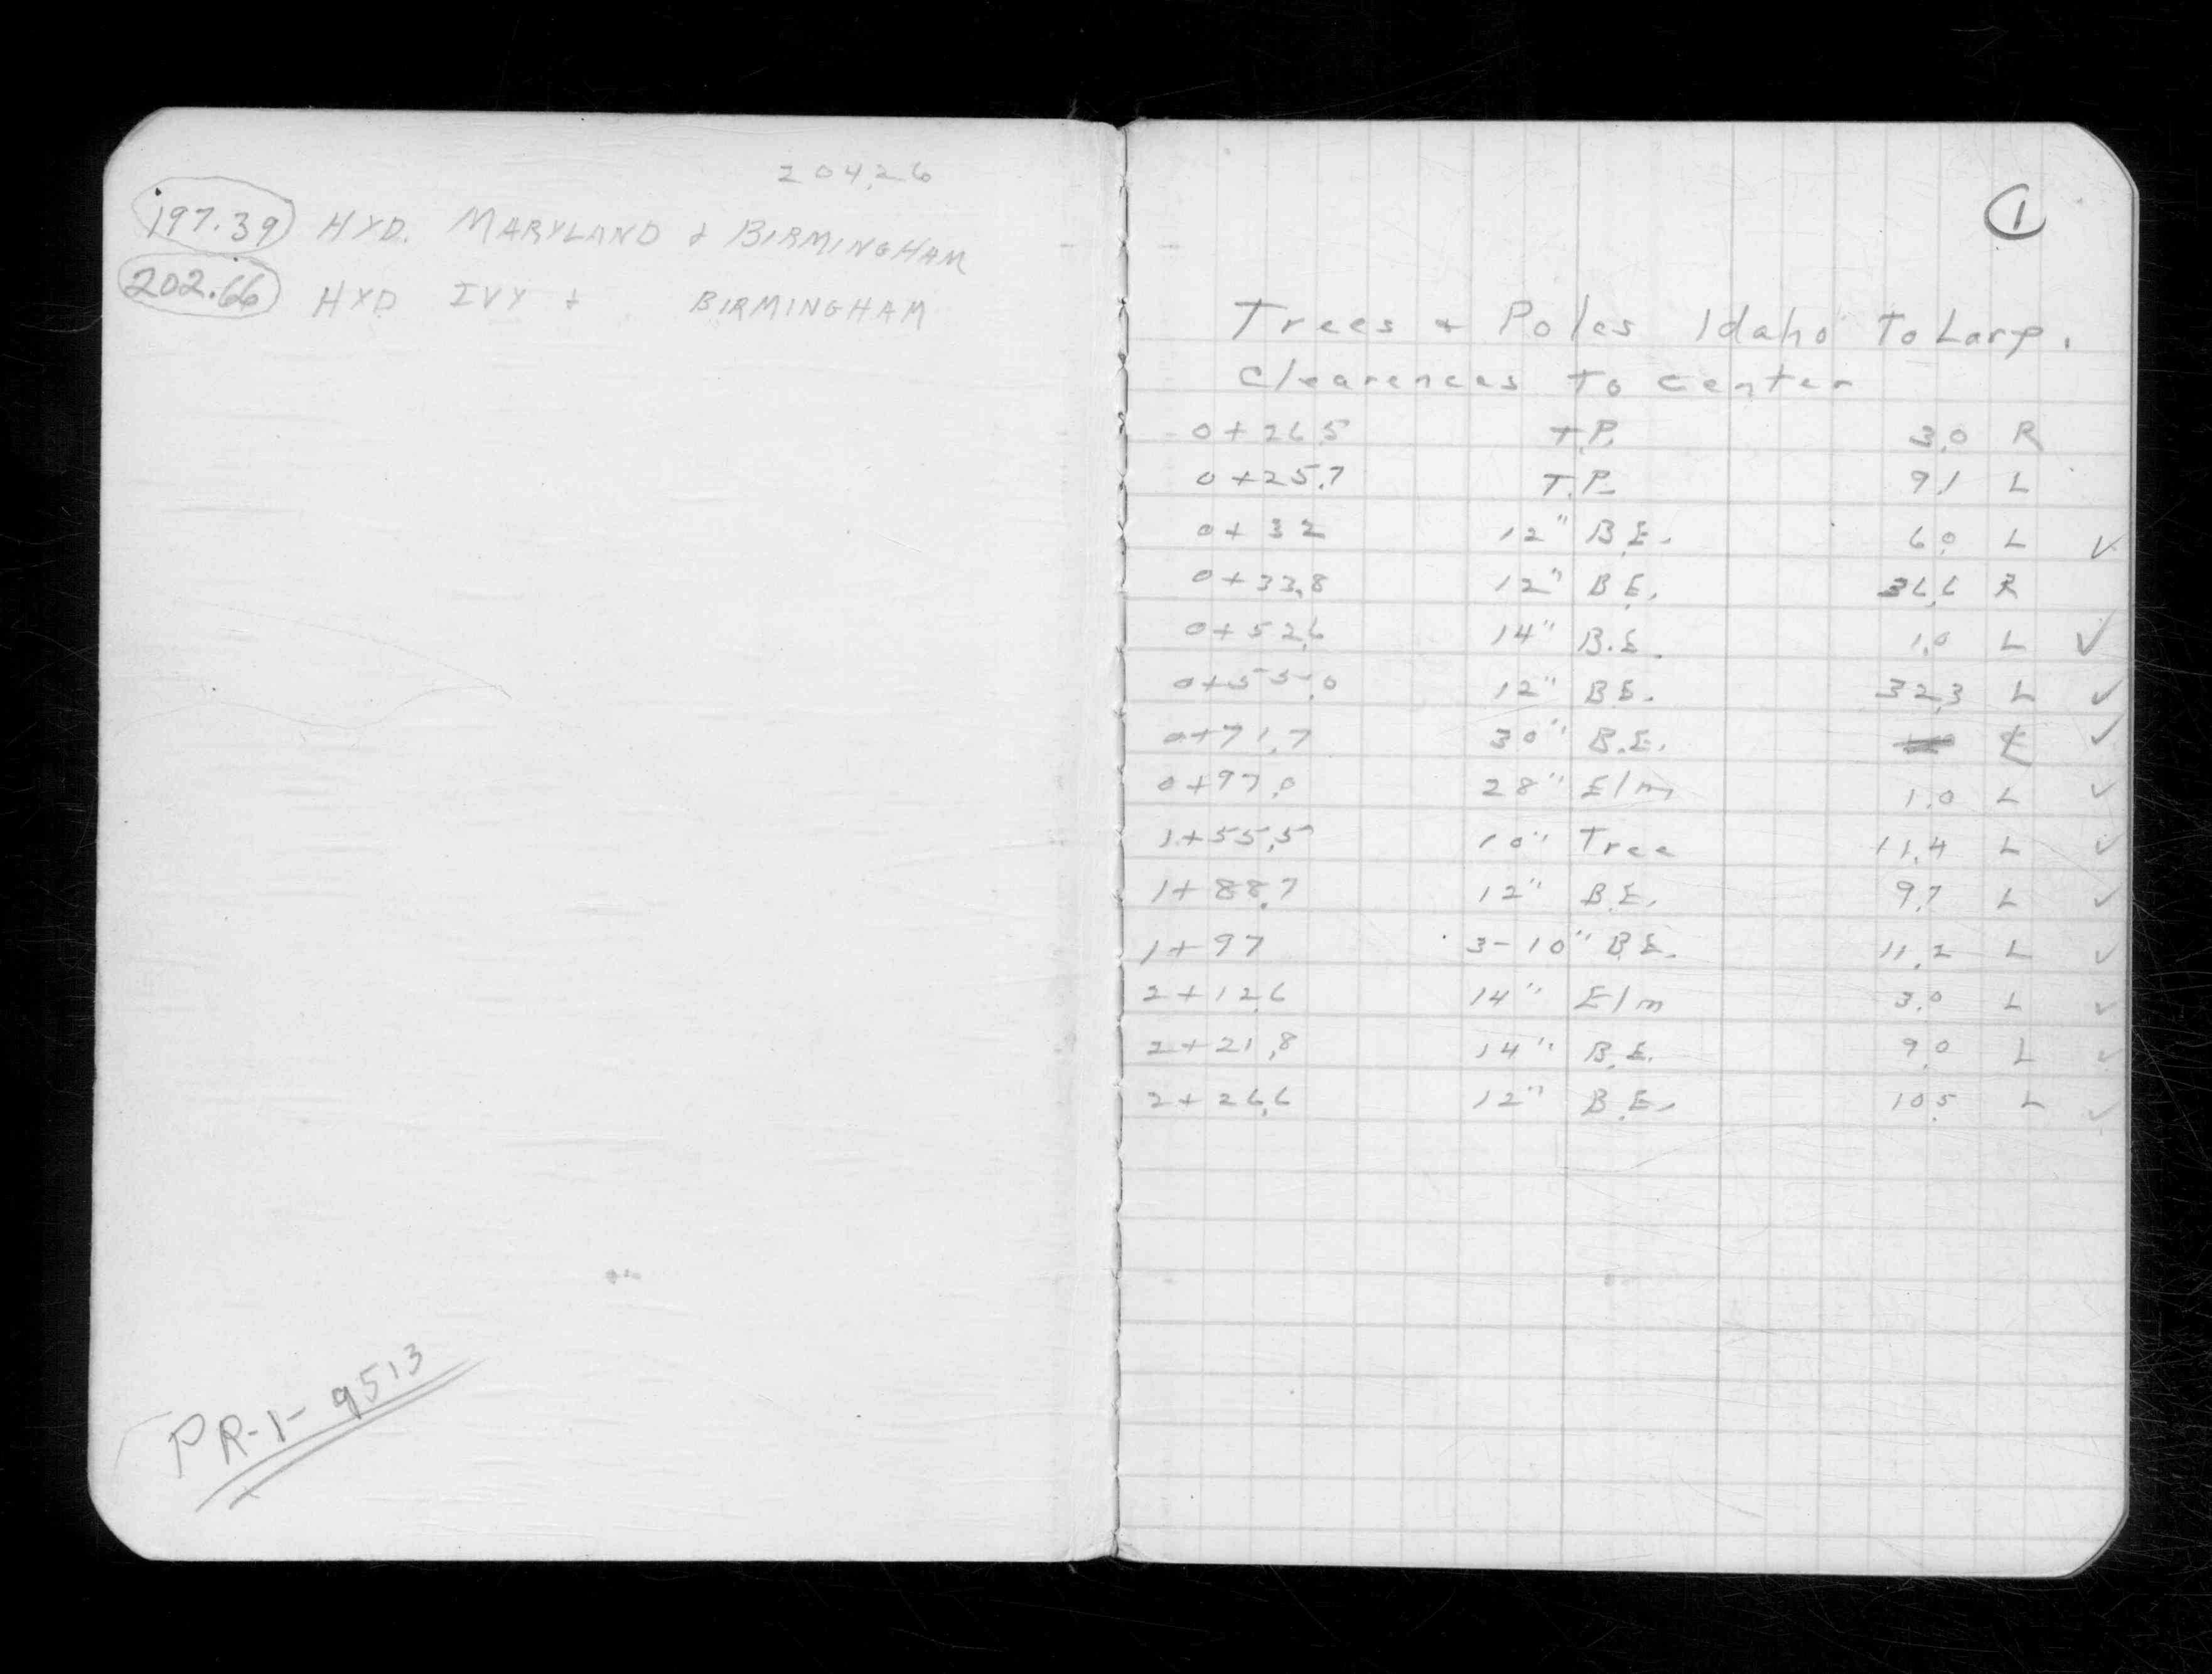 204.26
197.39 HYD. MARYLAND & BIRMINGHAM
202.66 HYD IVY & BIRMINGHAM
PR-1-9513
1
Trees & Poles Idaho To Larp.
Clearences To center
0+26.5 T.P. 3.0 R
0+25.7 T.P. 9.1 L
0+32 12" B.E. 6.0 L ✓
0+33.8 12" B.E. 36.6 R
0+52.6 14" B.E. 1.0 L ✓
0+55.0 12" B.E. 32.3 L ✓
0+71.7 30" B.E. ℄ ✓
0+97.0 28" Elm 1.0 L ✓
1+55.5 10" Tree 11.4 L ✓
1+88.7 12" B.E. 9.7 L ✓
1+97 3-10" B.E. 11.2 L ✓
2+12.6 14" Elm 3.0 L ✓
2+21.8 14" B.E. 9.0 L ✓
2+26.6 12" B.E. 10.5 L ✓